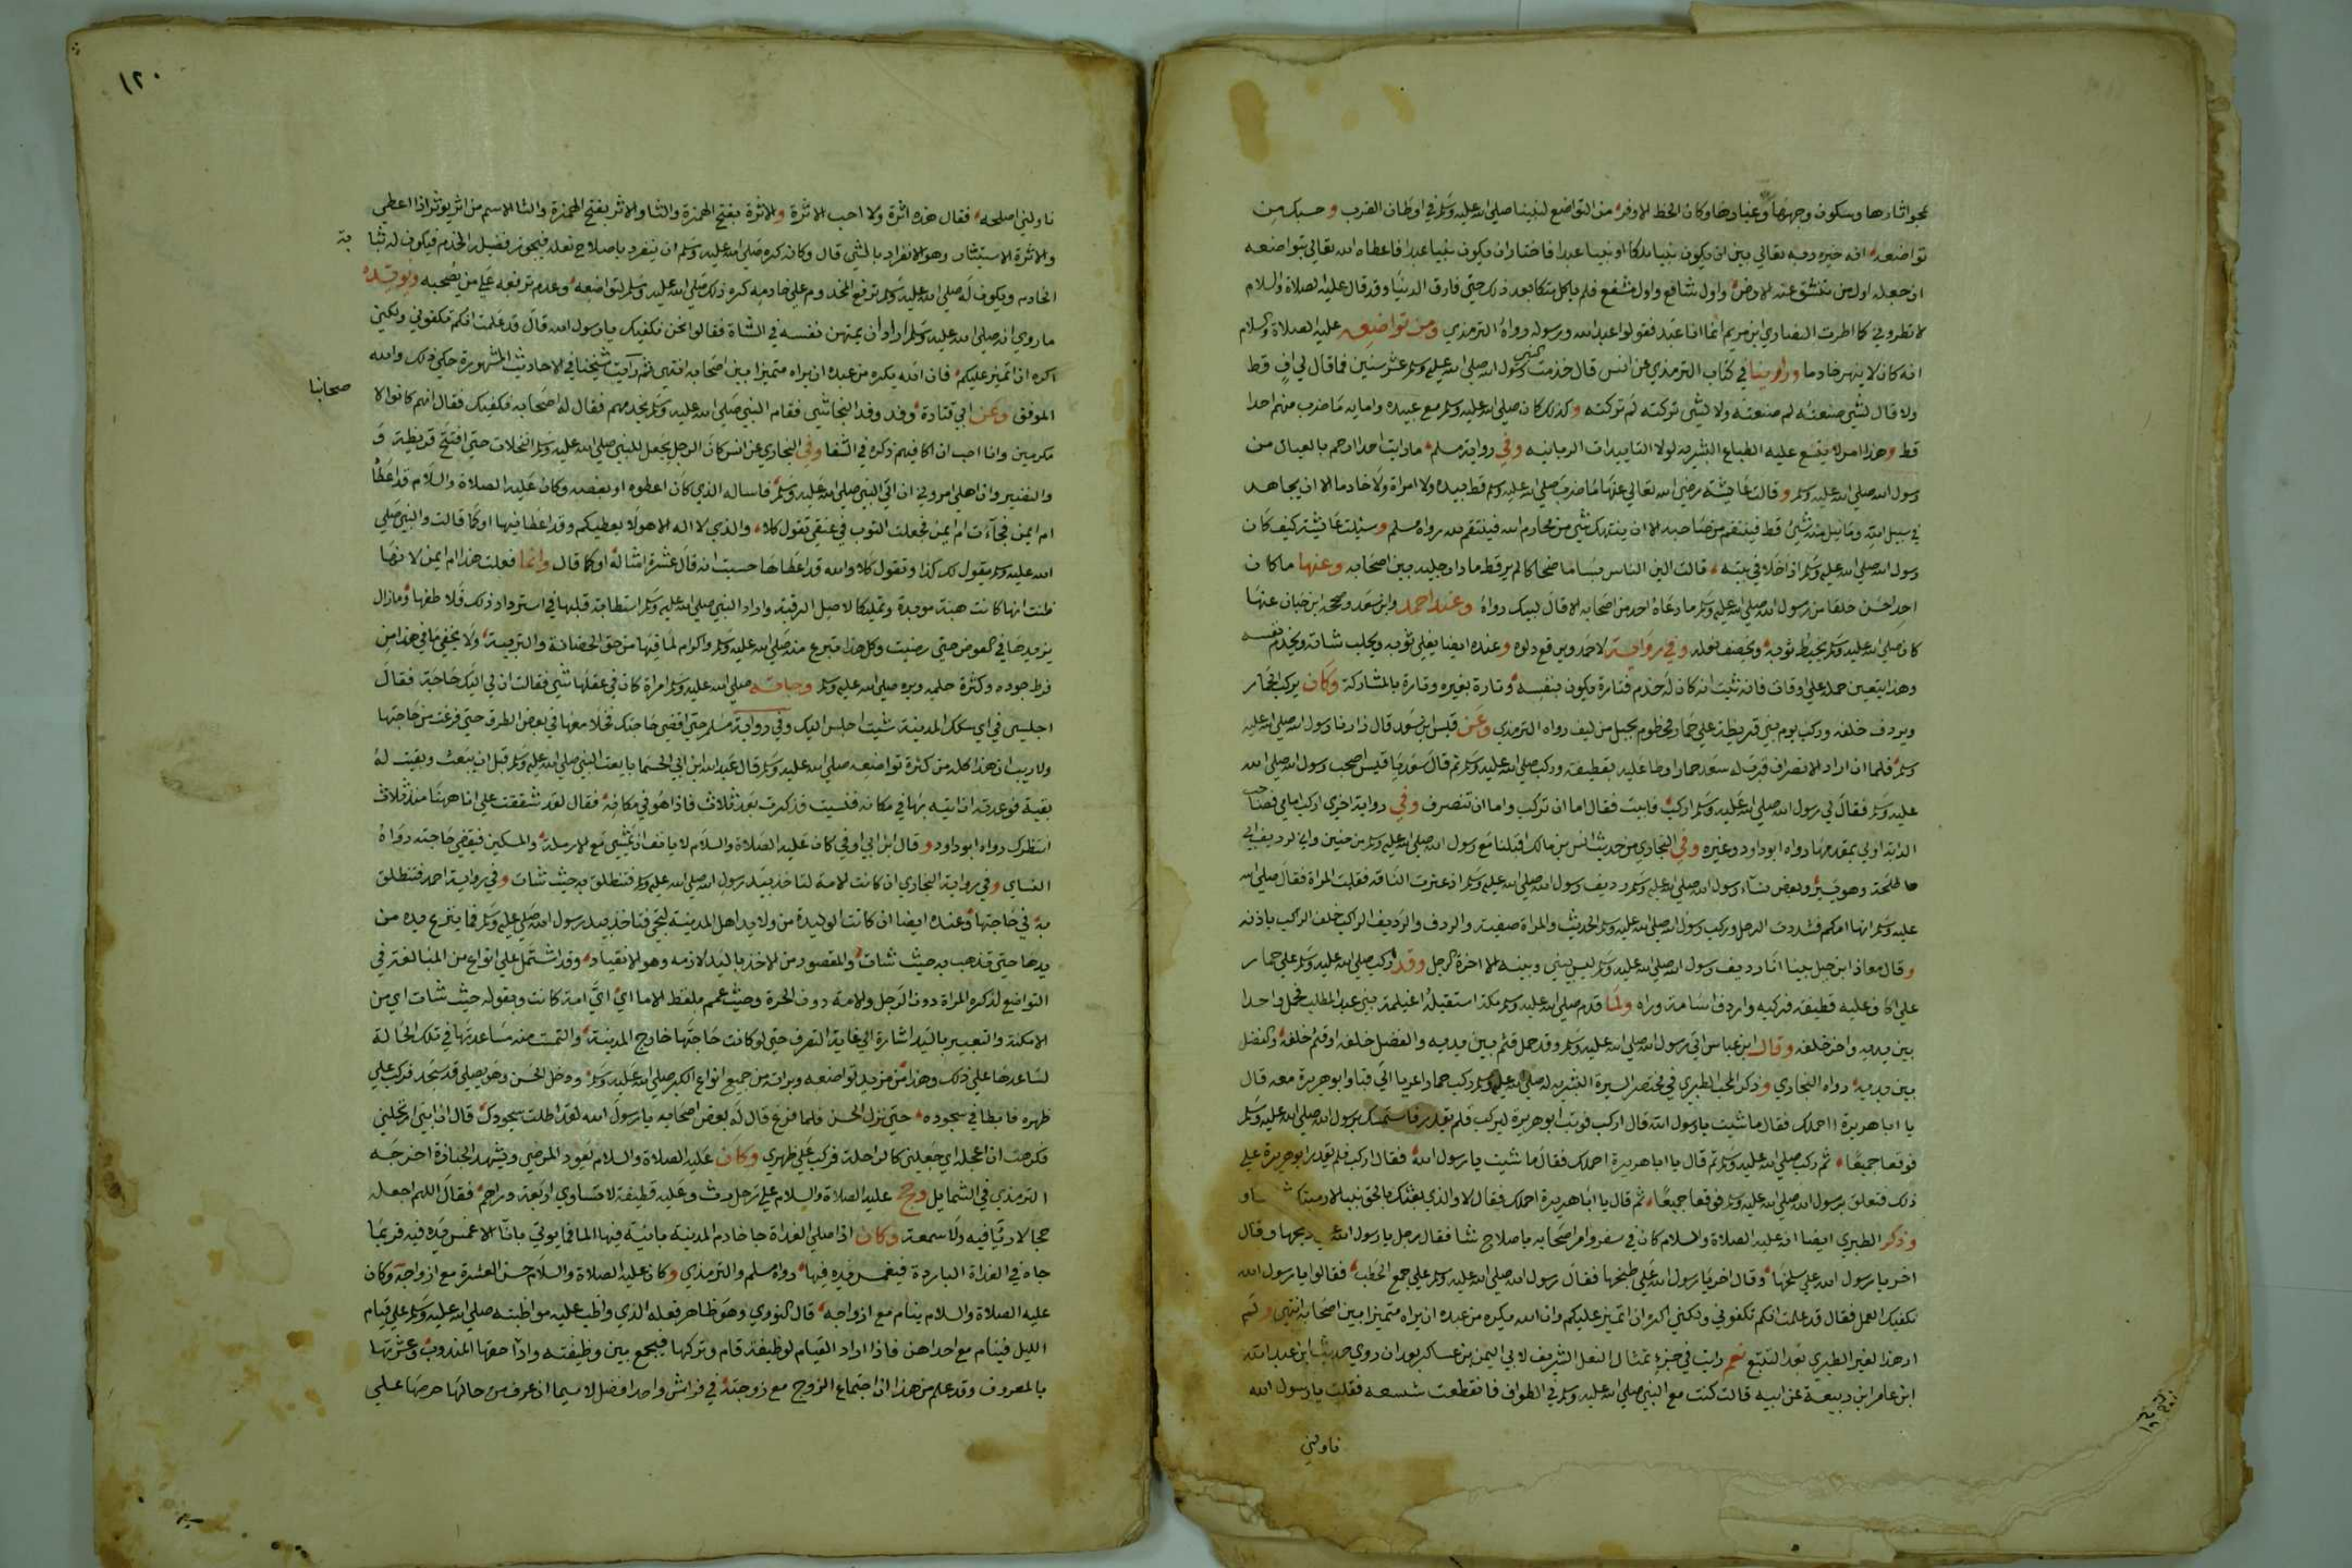 بمحو اثارها وسكون وهجها وغبارها وكان الحظ الاوفر من التواضع لنبينا صلى الله عليه وسلم في اوطان القرب وحسبك من
تواضعه انه خيره ربه تعالي بين ان يكون نبيا ملكا او نبيا عبدا فاختار ان يكون نبيا عبدا فاعطاه الله تعالي بتواضعه
ان جعله اول من تنشق عنه الارض واول شافع واول مشفع فلم ياكل متكئا بعد ذلك حتي فارق الدنيا وقد قال عليه الصلاة والسلام
لا تطروني كما اطرت النصاري ابن مريم انما انا عبد فقولوا عبد الله ورسوله رواه الترمذي ومن تواضعه عليه الصلاة والسلام
انه كان لا ينهر خادما وروينا في كتاب الترمذي عن انس قال خدمت النبي رسول الله صلى الله عليه وسلم عشر سنين فما قال لي اف قط
ولا قال لشي صنعته لم صنعته ولا لشي تركته لم تركته وكذلك كان صلى الله عليه وسلم مع عبيده وامايه ما ضرب منهم احدا
قط وهذا امر لا يتسع عليه الطباع البشريه لولا التاييدات الربانيه وفي رواية مسلم ما رايت احدا ارحم بالعيال من
رسول الله صلى الله عليه وسلم وقالت عايشة رضي الله تعالي عنها ما ضرب صلى الله عليه وسلم قط بيده ولا امراة ولا خادما الا ان يجاهد
في سبيل الله وما نيل منه شئ قط فينتقم من صاحبه الا ان ينتهك شي من محارم الله فينتقم لله رواه مسلم وسئلت عايشة كيف كان
رسول الله صلى الله عليه وسلم اذا خلا في بيته قالت الين الناس بساما ضحاكا لم ير قط مادا رجليه بين اصحابه وعنها ما كان
احد احسن خلقا من رسول الله صلى الله عليه وسلم ما دعاه احد من اصحابه الا قال لبيك رواه وعند احمد وابن سعد وصححه ابن حبان عنها
كان صلى الله عليه وسلم يخيط ثوبه ويخصف نعله وفي رواية لاحمد ويرقع دلوه وعنده ايضا يفلي ثوبه ويحلب شاته ويخدم نفسه
وهذا يتعين حمله علي اوقات فانه ثبت انه كان له خدم فتارة يكون بنفسه وتارة بغيره وتارة بالمشاركة وكان يركب الحمار
ويردف خلفه وركب يوم بني قريظة علي حمار مخطوم بحبل من ليف رواه الترمذي وعن قيس ابن سعد قال زارنا رسول الله صلى الله عليه
وسلم فلما اراد الانصراف قرب له سعد حمارا وطا عليه بقطيفة وركب صلى الله عليه وسلم ثم قال سعد يا قيس اصحب رسول الله صلى الله
عليه وسلم فقال لي رسول الله صلى الله عليه وسلم اركب فابيت فقال اما ان تركب واما ان تنصرف وفي رواية اخري اركب امامي فصاحب
الدابة اولي بمقدمها رواه ابو داود وغيره وفي البخاري من حديث انس بن مالك اقبلنا مع رسول الله صلى الله عليه وسلم من حنين واني لرديف ابي
طلحة وهو يسير وبعض نساء رسول الله صلى الله عليه وسلم رديف رسول الله صلى الله عليه وسلم اذ عثرت الناقه فقلت المراة فقال صلى الله
عليه وسلم انها امكم فشددت الرحل وركب رسول الله صلى الله عليه وسلم الحديث والمراة صفية والردف والرديف الراكب خلف الراكب باذنه
وقال معاذ ابن جبل بينا انا رديف رسول الله صلى الله عليه وسلم ليس بيني وبينه الا اخرة الرحل وقد ركب صلى الله عليه وسلم علي حمار
علي اكاف عليه قطيفة فدكيه واردف اسامة وراه ولما قدم صلى الله عليه وسلم مكة استقبله اغيلمة بني عبد المطلب فحمل واحدا
بين يديه واخر خلفه وقال ابن عباس اتي رسول الله صلى الله عليه وسلم وقد حمل قثم بين يديه والفضل خلفه او قثم خلفه والفضل
بين يديه رواه البخاري وذكر المحب الطبري في مختصر السيرة النبوية انه صلى الله عليه وسلم ركب حمارا عريا الي قبا وابو هريرة معه قال
يا ابا هريرة ااحملك فقال ما شيت يا رسول الله قال اركب فوثب ابو هريرة ليركب فلم يقدر فاستمسك برسول الله صلى الله عليه وسلم
فوقعا جميعا ثم ركب صلى الله عليه وسلم ثم قال يا ابا هريرة احملك فقال ما شيت يا رسول الله فقال اركب فلم يقدر ابو هريرة علي
ذلك فتعلق برسول الله صلى الله عليه وسلم فوقعا جميعا ثم قال يا ابا هريرة احملك فقال لا والذي بعثك بالحق نبيا لا رميتك
وذكر الطبري ايضا انه عليه الصلاة والسلام كان في سفر وامر اصحابه باصلاح شاة فقال رجل يا رسول الله علي ذبحها وقال
اخر يا رسول الله علي سلخها وقال اخر يا رسول الله علي طبخها فقال رسول الله صلى الله عليه وسلم علي جمع الحطب فقالوا يا رسول الله
نكفيك العمل فقال قد علمت انكم تكفوني ولكني اكره ان اتميز عليكم وان الله يكره من عبده ان يراه متميزا بين اصحابه انتهي ولم
ار هذا لغير الطبري بعد التتبع نعم رايت في جزء تمثال النعل الشريف لابي اليمن بن عساكر بعد ان روي حديثا ابن عبد الله
ابن عامر ابن ربيعة عن ابيه قالت كنت مع النبي صلى الله عليه وسلم في الطواف فانقطعت شسعه فقلت يا رسول الله
ناولني
١٢٠
ناولني اصلحه فقال هذه اثرة ولا احب الاثرة والاثرة بفتح الهمزة والثا والاثر بفتح الهمزة والثا الاسم من اثر يوثر اذا اعطي
والاثرة الاستيثار وهو الانفراد بالشي قال وكانه كره صلى الله عليه وسلم ان ينفرد باصلاح نعله فيحوز فضيلة الخدم فيكون له مثابة
الخادم ويكون له صلى الله عليه وسلم ترفع المخدوم علي خادمه كره ذلك صلى الله عليه وسلم لتواضعه وعدم ترفعه علي من يصحبه ويويده
ما روي انه صلى الله عليه وسلم اراد ان يمتهن نفسه في الشاة فقالوا نحن نكفيك يا رسول الله قال قد علمت انكم تكفوني ولكني
اكره ان اتميز عليكم فان الله يكره من عبده ان يراه متميزا بين اصحابه انتهي ثم رايت شيخنا في الاحاديث المشهورة حكي ذلك والله
الموفق وعن ابي قتادة وفد وفد النجاشي فقام النبي صلى الله عليه وسلم يخدمهم فقال له اصحابه نكفيك فقال انهم كانوا لا
صحابنا
مكرمين وانا احب ان اكافيهم ذكره في الشفا وفي البخاري عن انس كان الرجل يجعل للنبي صلى الله عليه وسلم النخلات حتي افتتح قريظة و
والنضير وان اهلي امروني ان اتي النبي صلى الله عليه وسلم فاساله الذي كان اعطوه او بعضه وكان عليه الصلاة والسلام قد اعطاه
ام ايمن فجاءت ام ايمن فجعلت الثوب في عنقي تقول كلا والذي لا اله الا هو لا يعطيكم وقد اعطانيها او كما قالت والنبي صلي
الله عليه وسلم يقول لك كذا وتقول كلا والله قد اعطاها حسبت انه قال عشرة امثاله او كما قال وانما فعلت هذا ام ايمن لانها
ظنت انها كانت هبة موبدة وتمليكا لاصل الرقبة واراد النبي صلى الله عليه وسلم استطابة قلبها في استرداد ذلك فلاطفها وما زال
يزيدها في العوض حتي رضيت وكل هذا تبرع منه صلى الله عليه وسلم واكرام لها لما فيها من حق الحضانة والتربية ولا يخفي ما في هذا من
فرط جوده وكثرة حلمه وبره صلى الله عليه وسلم وجاته صلى الله عليه وسلم امراة كان في عقلها شي فقالت ان لي اليك حاجة فقال
اجلسي في اي سكك المدينة شيت اجلس اليك وفي رواية مسلم حتي اقضي حاجتك فخلا معها في بعض الطرق حتي فرغت من حاجتها
ولا ريب ان هذا كله من كثرة تواضعه صلى الله عليه وسلم قال عبد الله ابن ابي الحسما بايعت النبي صلى الله عليه وسلم قبل ان يبعث وبقيت له
بقية فوعدته ان اتيه بها في مكانه فنسيت فذكرت بعد ثلاث فاذا هو في مكانه فقال لقد شققت علي انا ههنا منذ ثلاث
انتظرك رواه ابو داود وقال ابن ابي اوفي كان عليه الصلاة والسلام لا يانف ان يمشي مع الارملة والمسكين فيقضي حاجته رواه
النساي وفي رواية البخاري ان كانت الامة لتاخذ بيد رسول الله صلى الله عليه وسلم فتنطلق به حيث شات وفي رواية احمد فتنطلق
به في حاجتها وعنده ايضا ان كانت الوليدة من ولايد اهل المدينة لتجي فتاخذ بيد رسول الله صلى الله عليه وسلم فما ينزع يده من
يدها حتي تذهب به حيث شات والمقصود من الاخذ باليد لازمه وهو الانقياد وقد اشتمل علي انواع من المبالغة في
التواضع لذكره المراة دون الرجل والامة دون الحرة وحيث عمم بلفظ الاما اي اي امة كانت وبقوله حيث شات اي من
الامكنة والتعبير باليد اشارة الي غاية التصرف حتي لو كانت حاجتها خارج المدينة والتمست منه مساعدتها في تلك الحالة
لساعدها علي ذلك وهذا من مزيد تواضعه وبراته من جميع انواع الكبر صلى الله عليه وسلم ودخل الحسن وهو يصلي قد سجد فركب علي
ظهره فابطا في سجوده حتي نزل الحسن فلما فرغ قال له بعض اصحابه يا رسول الله لقد اطلت سجودك قال ان ابني ارتحلني
فكرهت ان اعجله اي جعلني كالراحلة فركب علي ظهري وكان عليه الصلاة والسلام يعود المرضي ويشهد الجنازة اخرجه
الترمذي في الشمايل وحج عليه الصلاة والسلام علي رحل رث وعليه قطيفة لا تساوي اربعة دراهم فقال اللهم اجعله
حجا لا ريا فيه ولا سمعة وكان اذا صلي الغداة جا خادم المدينة بانية فيها الما فما يوتي بانا الا غمس يده فيه فربما
جاه في الغداة الباردة فيغمس يده فيها رواه مسلم والترمذي وكان عليه الصلاة والسلام حسن العشرة مع ازواجه وكان
عليه الصلاة والسلام ينام مع ازواجه قال النووي وهو ظاهر فعله الذي واظب عليه مواظبته صلى الله عليه وسلم علي قيام
الليل فينام مع احداهن فاذا اراد القيام لوظيفته قام وتركها فيجمع بين وظيفته واداء حقها المندوب وعشرتها
بالمعروف وقد علم من هذا ان اجتماع الزوج مع زوجته في فراش واحد افضل لا سيما ان عرف من حالها حرصها علي